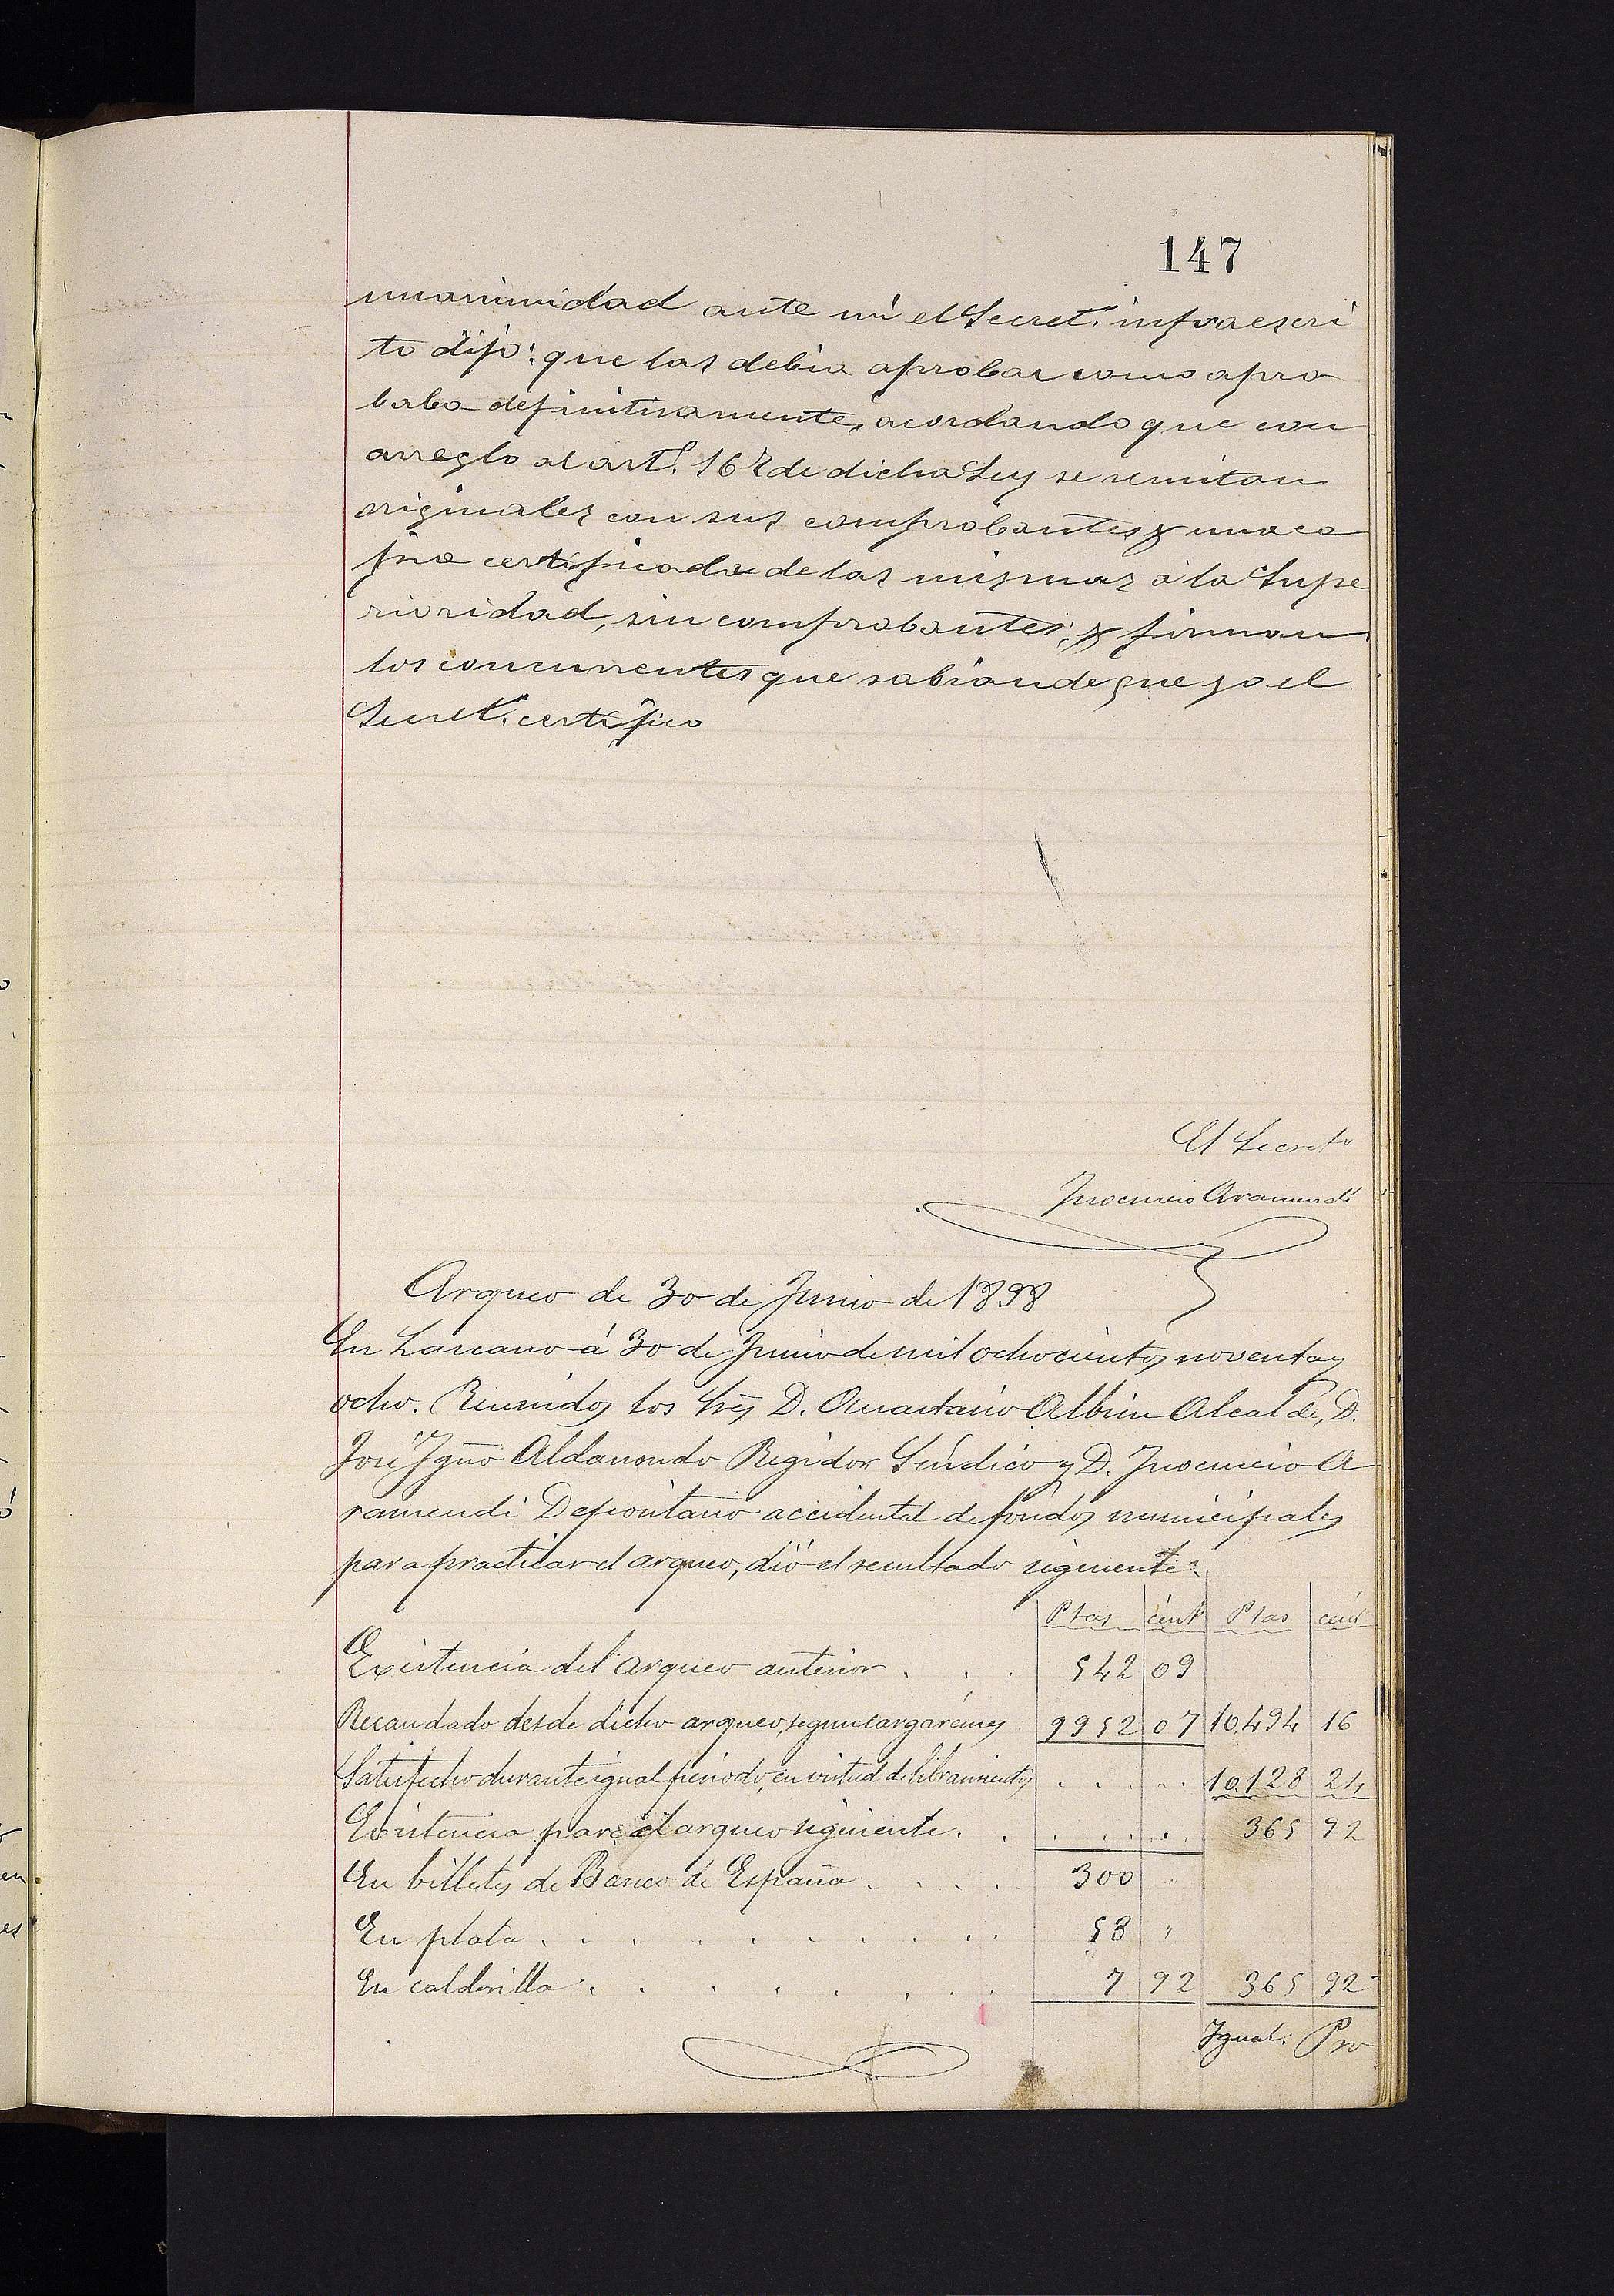 147
unanimidad ante mi el Secret.º infraescri
to dijo: que las debia aprobar como apro
baba definitivamente, acordando que con
arreglo al art.º 162 de dicha Ley se remitan
originales con sus comprobantes y una co
pia certificada de las mismas á la Supe
rioridad, sin comprobantes, y firman
los concurrentes que sabian de que yo el
Secret.º certifico
El Secret.º
Inocencio Aramendi
Arqueo de 30 de Junio de 1898
En Lazcano á 30 de Junio de mil ochocientos noventa y
ocho. Reunidos los Sres D. Anastasio Albisu Alcalde, D.
José Ignº Aldanondo Regidor Sindico y D. Inocencio A
ramendi Depositario accidental de fondos municipales
para practicar el arqueo, dió el resultado siguiente:
Ptas cent Ptas cent
Existencia del arqueo anterior . . . 542 09
Recaudado desde dicho arqueo, segun cargarémes 9952 07 10.494 16
Satisfecho durante igual periodo, en virtud de libramientos . . . . . 10.128 24
Existencia para el arqueo siguiente . . . . . . . 365 92
En billetes de Banco de España . . . . 300 "
En plata . . . . . . . . . . 58 "
En calderilla . . . . . . . . 7 92 365 92
Igual. Pro